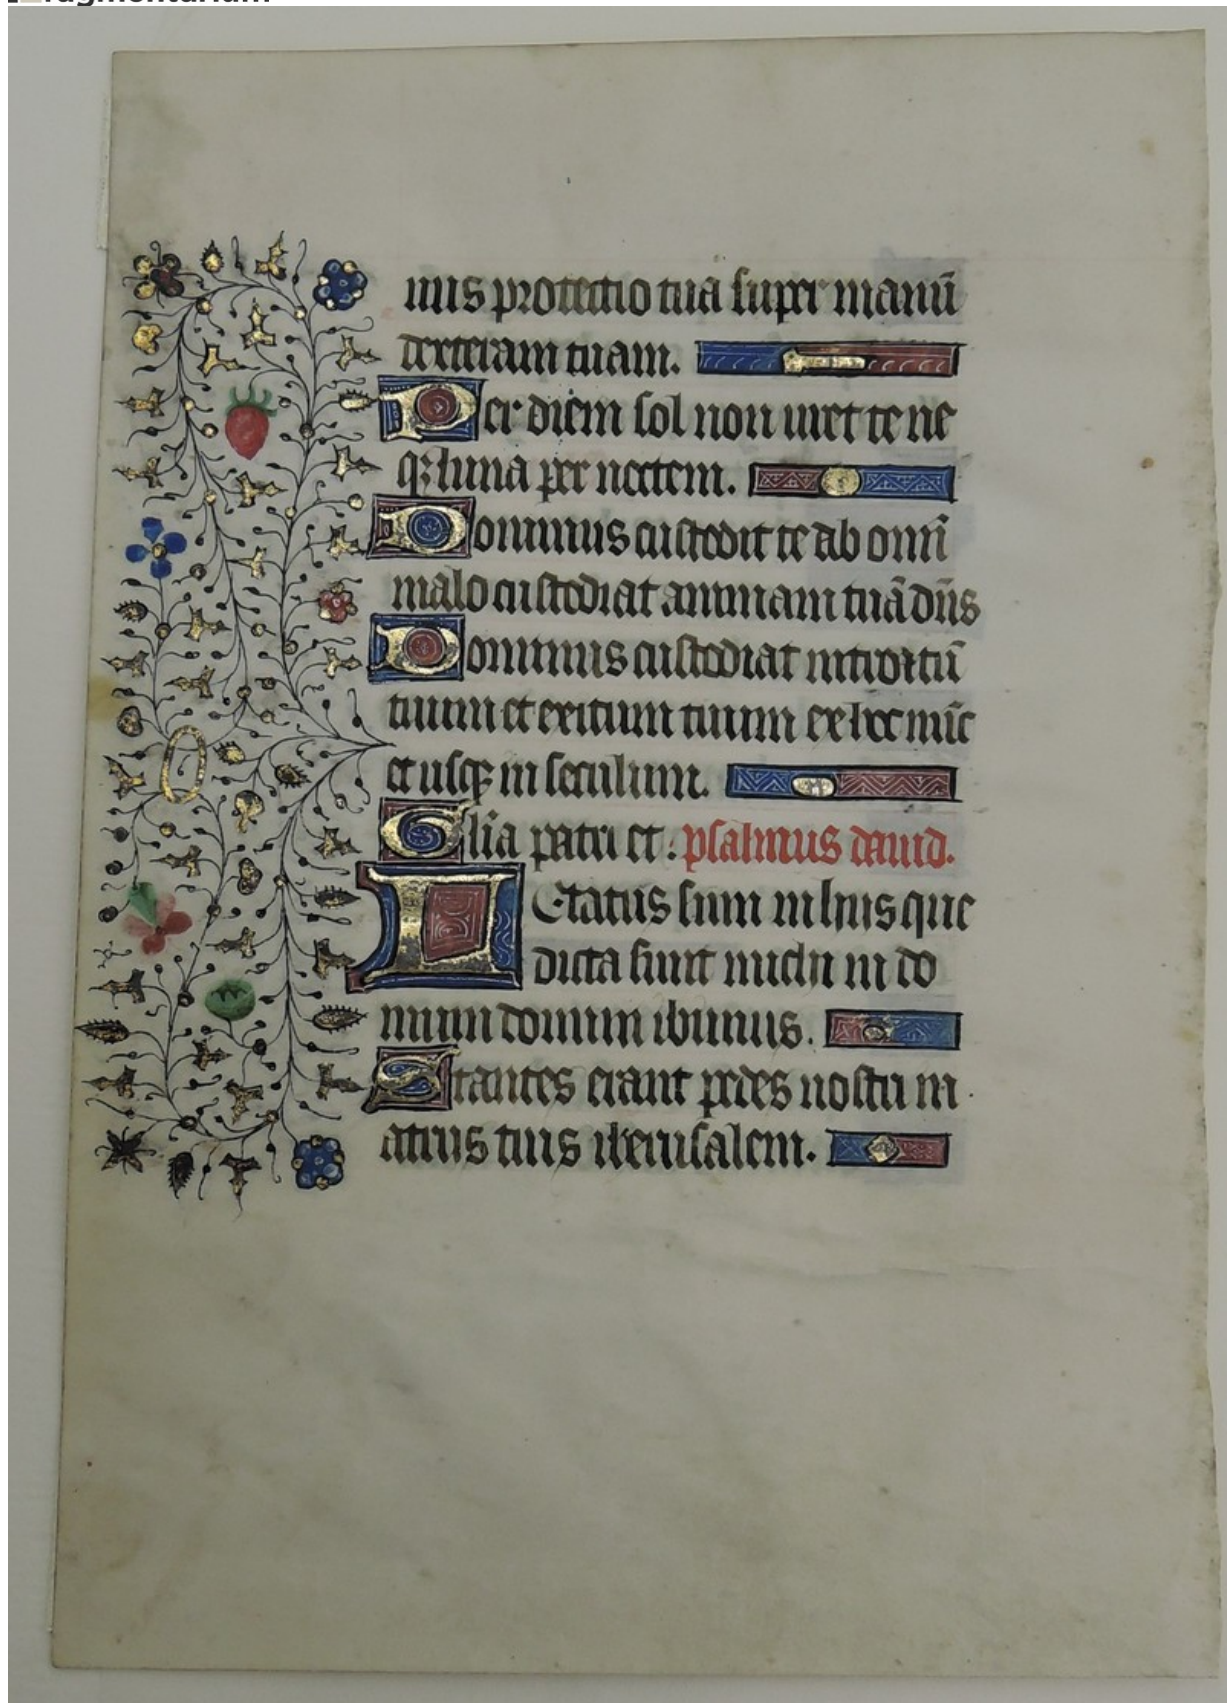 fragmentarium
nus protectio tua super manū
dexteram tuam.
Per diem sol non uret te ne
qꝫ luna per noctem.
Dominus custodit te ab omī
malo custodiat animam tuā dn̄s
Dominus custodiat introitū
tuum et exitum tuum ex hoc nūc
et usqꝫ in seculum.
Gl̄ia patri et : psalmus dauid.
LEtatus sum in hiis que
dicta sunt michi in do
mum domini ibimus.
Stantes erant pedes nostri in
atriis tuis iherusalem.